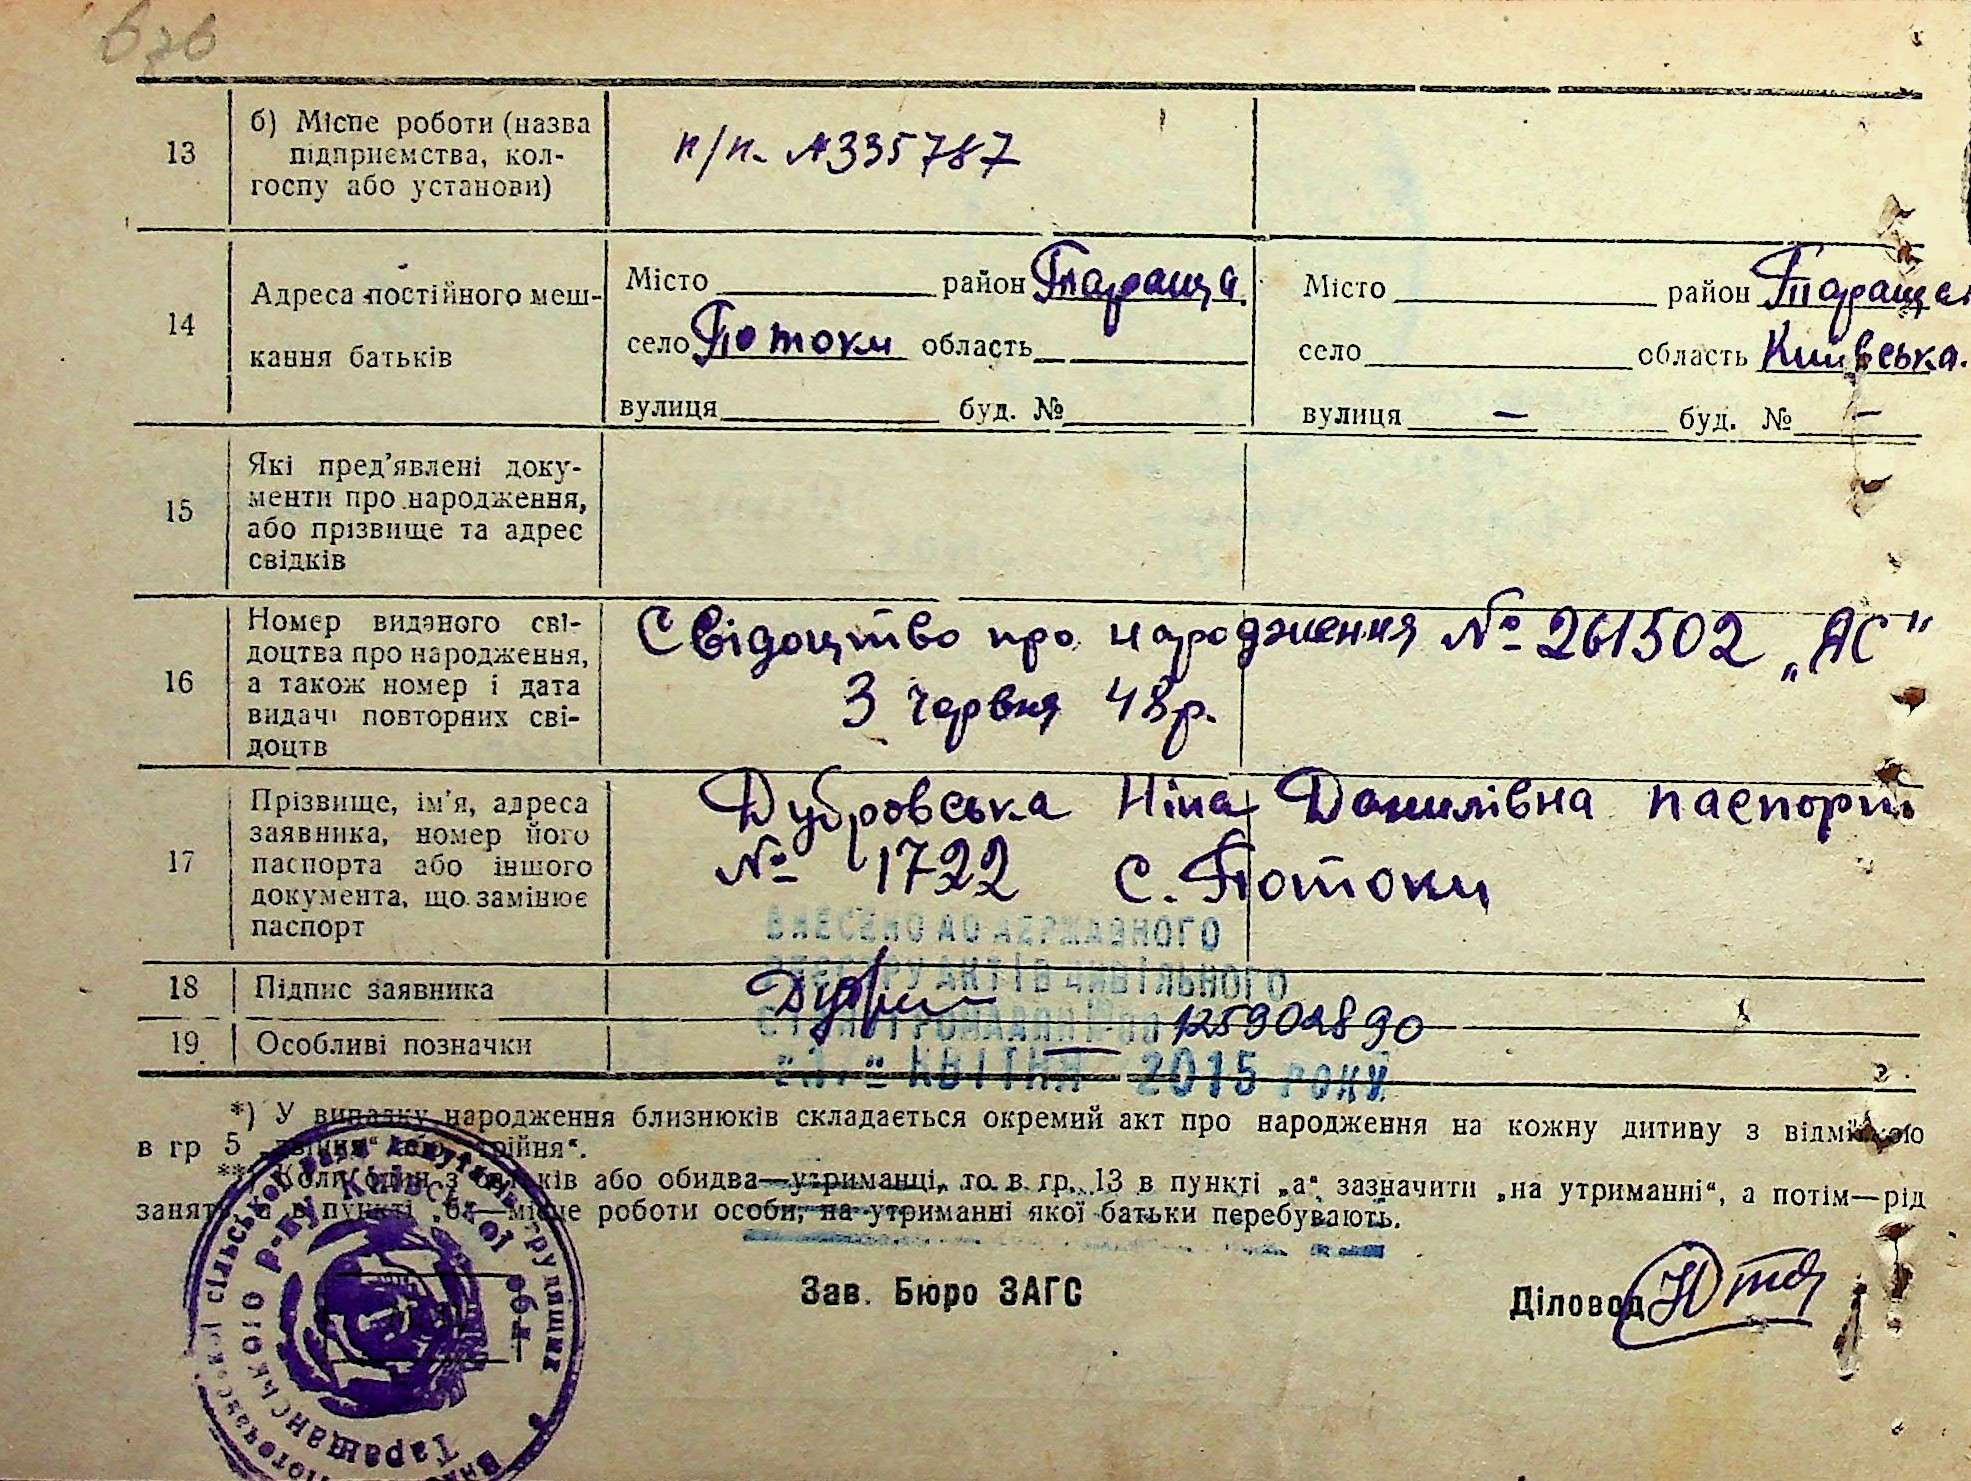 13
б) Місце роботи (назва
підприємства, кол-
госпу або установи)
п/п. А335787
14
Адреса постійного меш-
кання батьків
Місто район Тараща.
село Потоки область
вулиця буд. №
Місто район
село область Київська.
вулиця — буд. № —
15
Які пред'явлені доку-
менти про народження,
або прізвище та адрес
свідків
16
Номер виданого сві-
доцтва про народження,
а також номер і дата
видачі повторних сві-
доцтв
Свідоцтво про народження № 261502 „АС"
3 червня 48 р.
17
Прізвище, ім'я, адреса
заявника, номер його
паспорта або іншого
документа, що замінює
паспорт
Дубровська Ніна Данилівна паспорт
№ 1722 с. Потоки
ВНЕСЕНО ДО ДЕРЖАВНОГО
РЕЄСТРУ АКТІВ ЦИВІЛЬНОГО
18
Підпис заявника
19
Особливі позначки
—
КВІТНЯ 2015 РОКУ
*) У випадку народження близнюків складається окремий акт про народження на кожну дитину з відміткою
в гр 5 „двійня“ або „трійня“.
**) Коли один з батьків або обидва—утриманці, то в гр. 13 в пункті „а“ зазначити „на утриманні“, а потім—рід
занять, а в пункті „б“—місце роботи особи, на утриманні якої батьки перебувають.
Зав. Бюро ЗАГС
Діловод
сільської ради депутатів трудящих
Таращанського р-ну Київської обл.